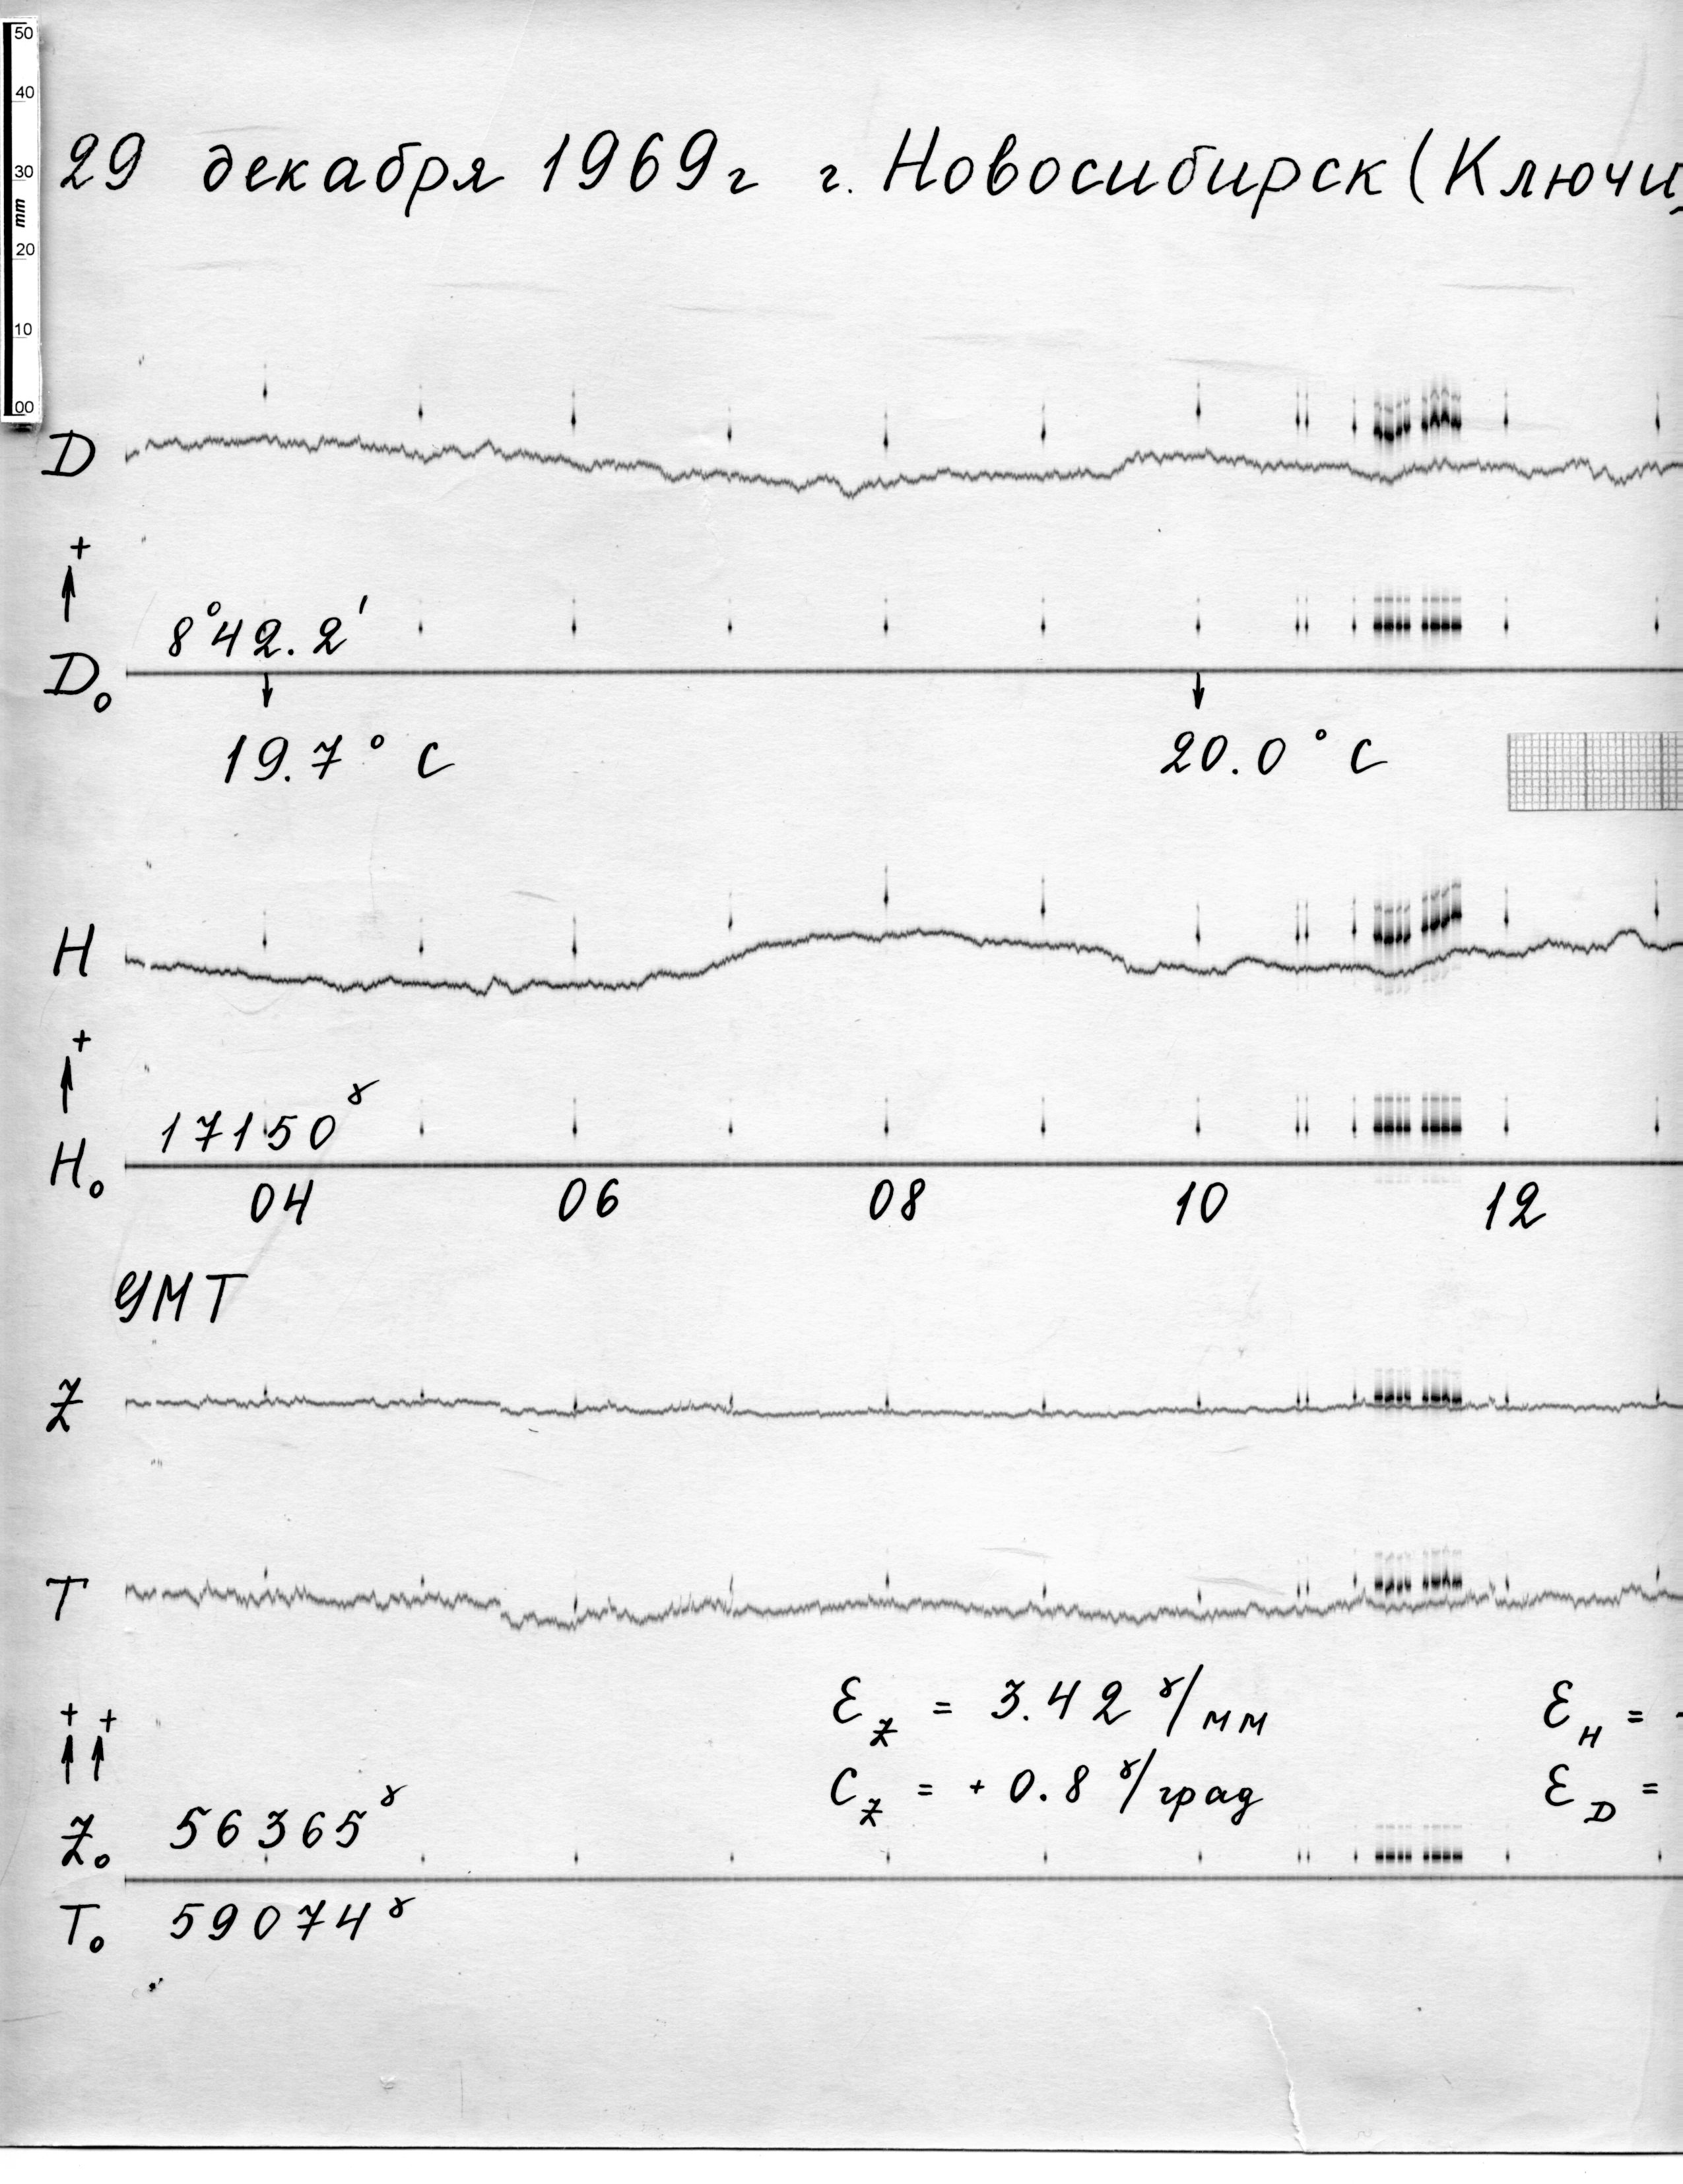 50
40
30
mm
20
10
00
29 декабря 1969г г. Новосибирск (Ключи
D
+
8°42.2'
D₀
19.7° C
20.0° C
H
+
17150ɣ
H₀
04 06 08 10 12
УМТ
Z
T
Ɛ_Z = 3.42 ɣ/мм
Ɛ_H =
+ +
C_Z = + 0.8 ɣ/град
Ɛ_D =
Z₀ 56365ɣ
T₀ 59074ɣ